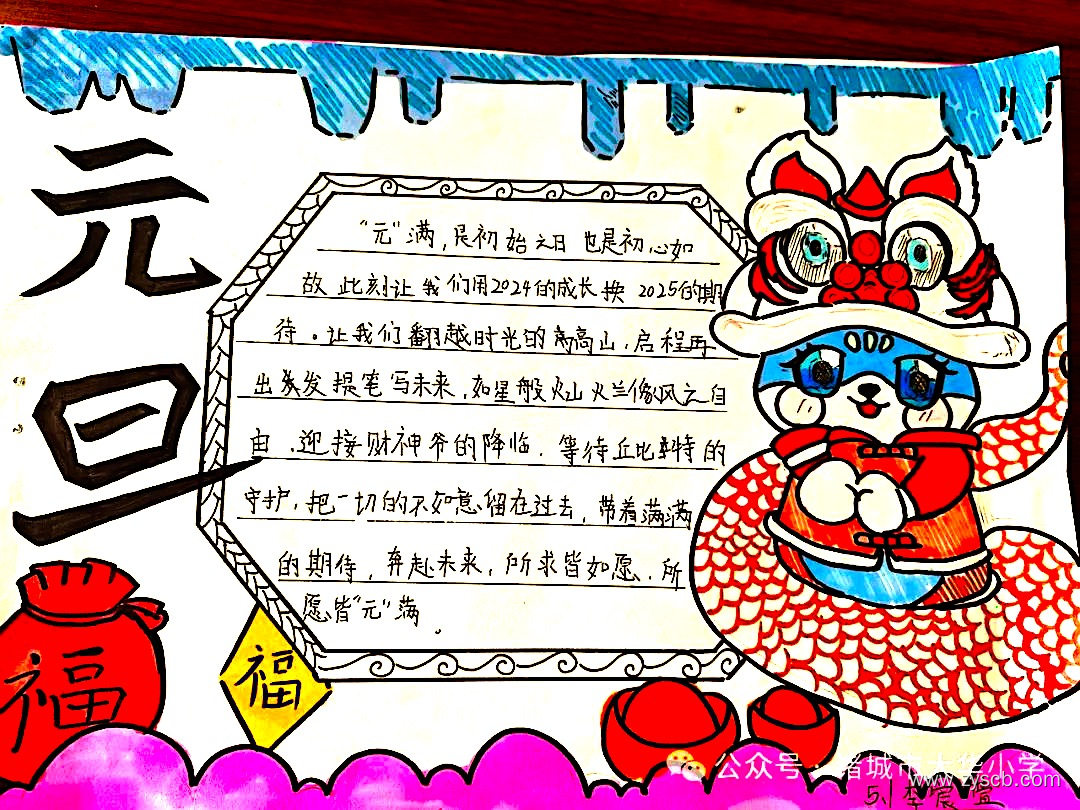 元旦
"元"满,是初始之日 也是初心如
故 此刻让我们用2024的成长换 2025的期
待。让我们翻越时光的高山,启程再
出发 提笔写未来,如星般火山火兰像风云自
由、迎接财神爷的降临.等待丘比特的
守护,把一切的不如意留在过去,带着满满
的期待,奔赴未来,所求皆如愿.所
愿皆"元"满。
福
福
公众号·诸城市大华小学
www.zyscb.com
5.1 李宸